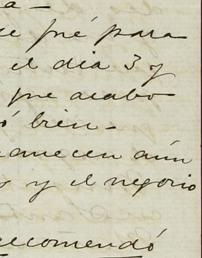 a -
fué para
el dia 3 y
que acabo
ó bien -
anecen aún
y el negocio
recomendó